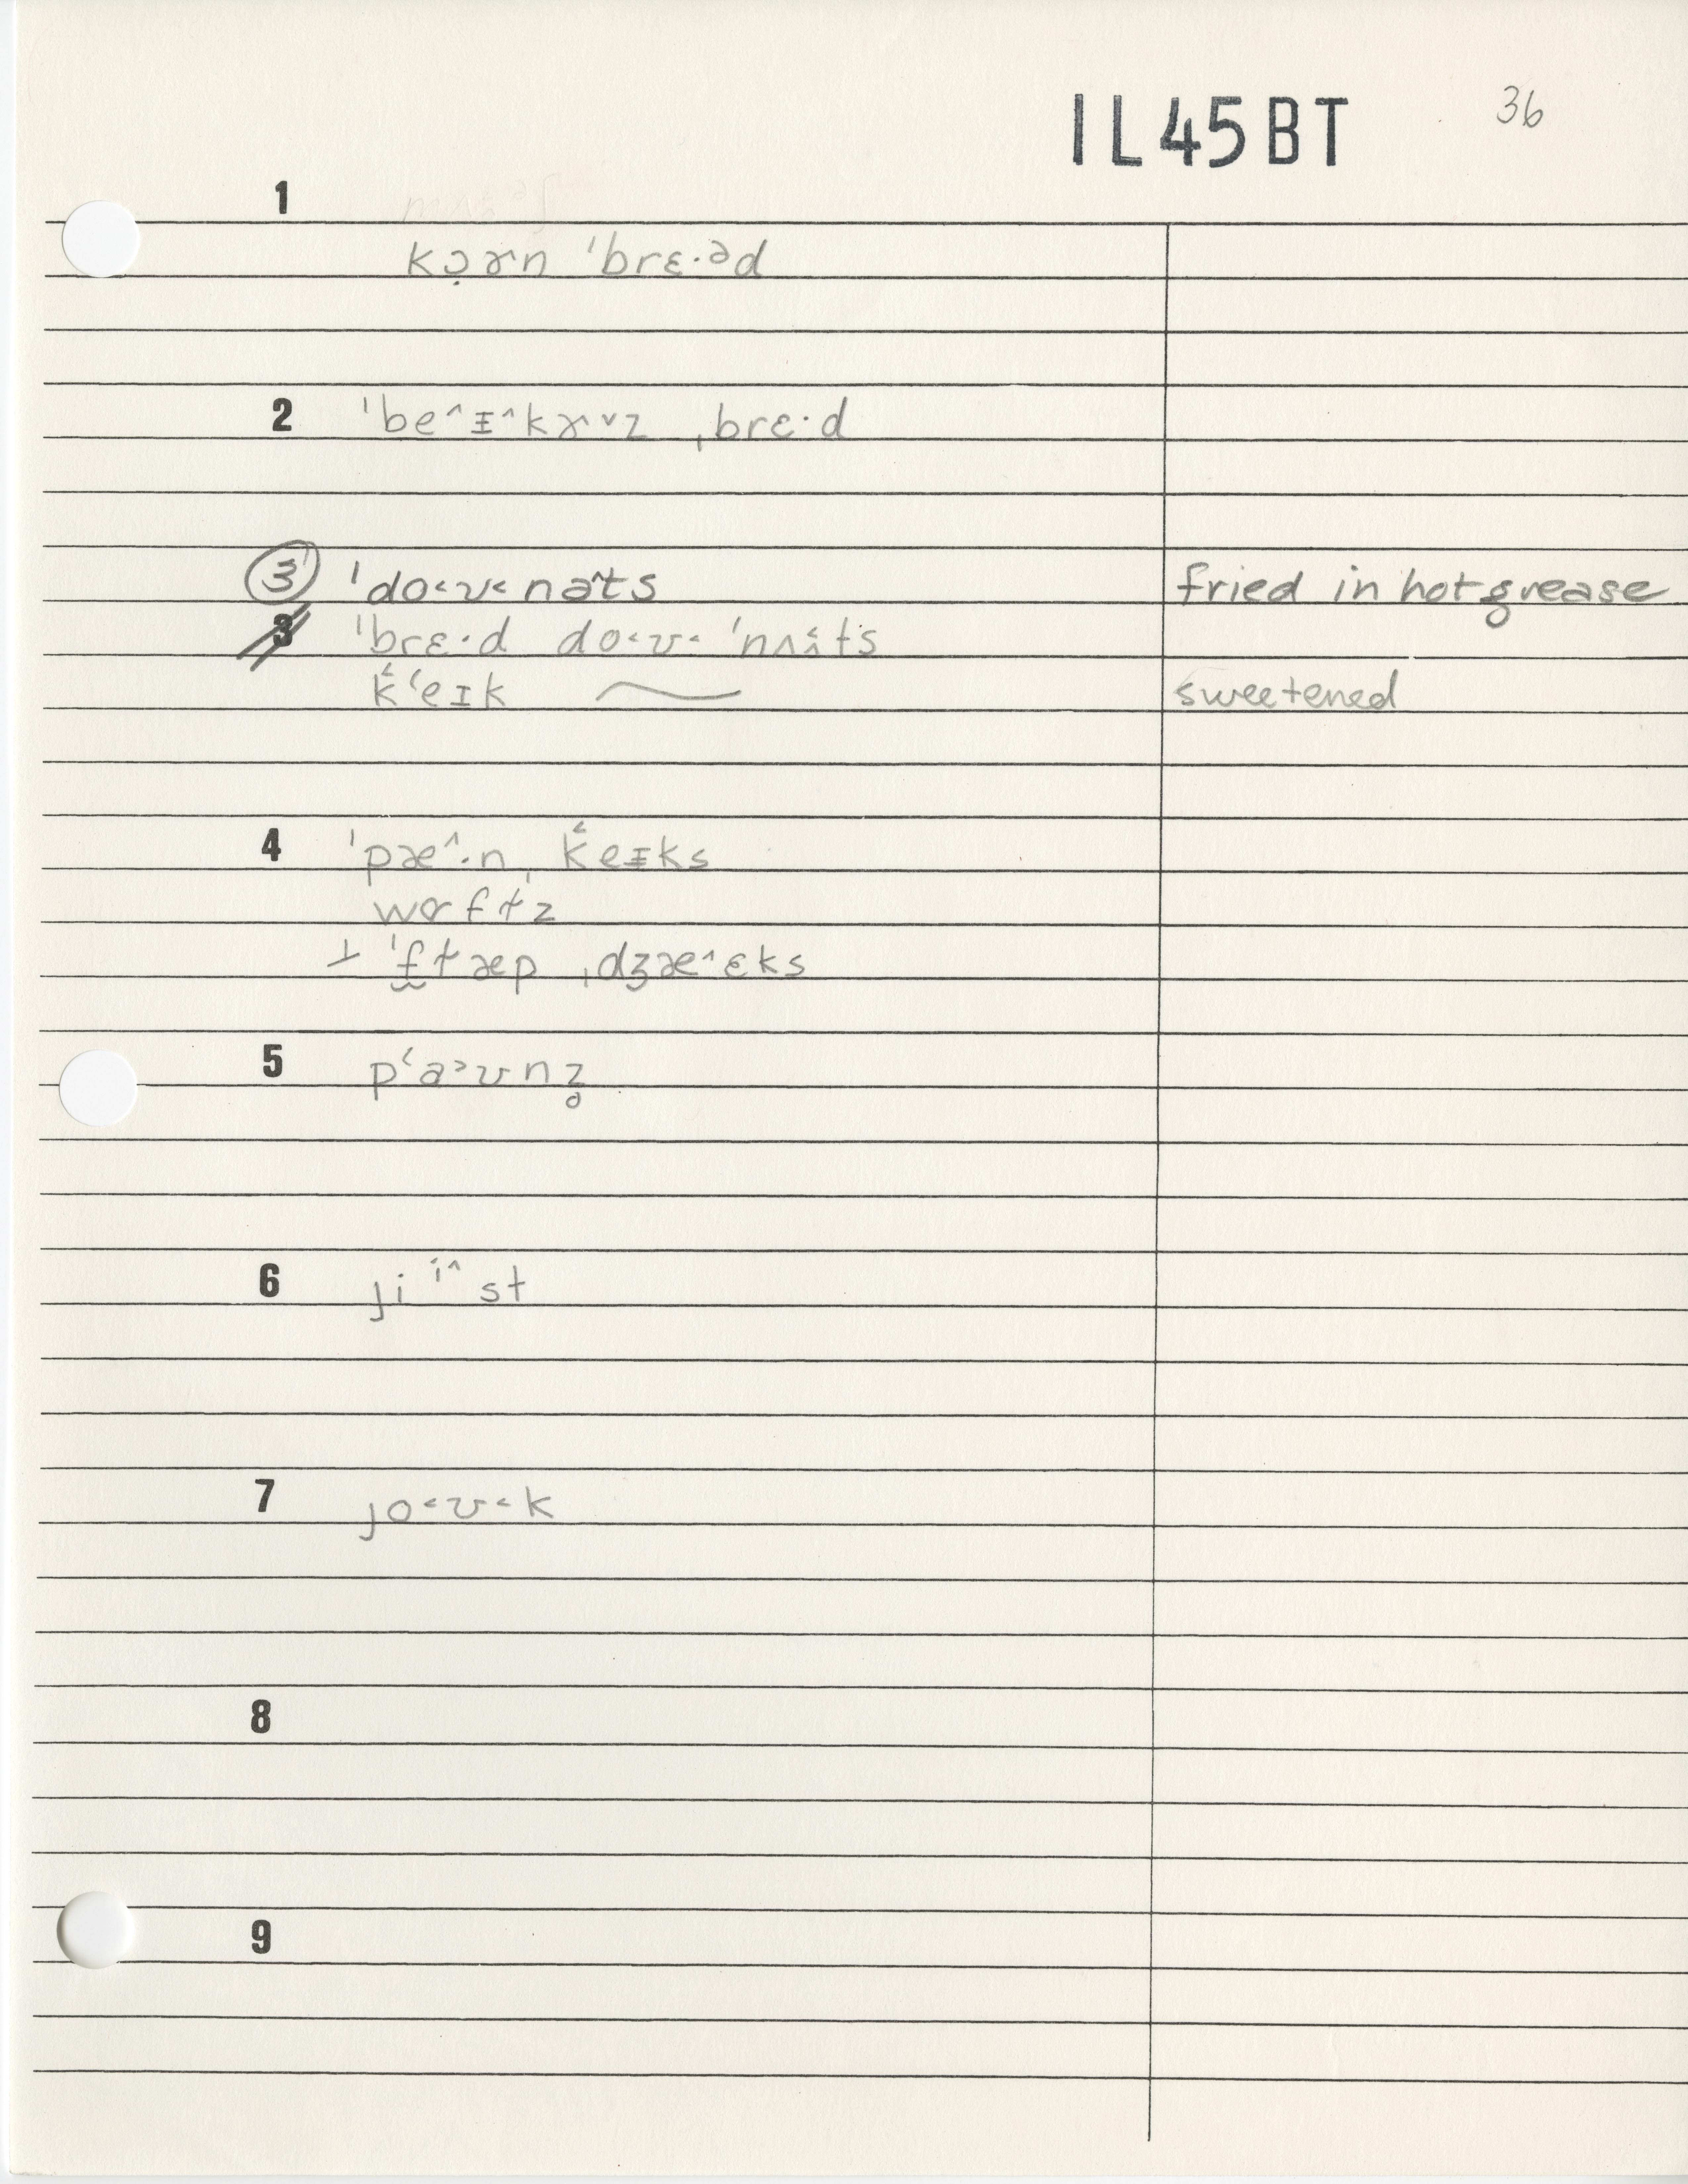 1L45BT 36
1
kɔ̣ɚn ˈbrɛ·ᵊd
2 ˈbe^ᵻ^kɚ˅z ˌbrɛ·d
③ ˈdo˂ʊ˂nət̃s fried in hot grease
3 ˈbrɛ·d do˂ʊ˂ ˈnʌɨ̂ts
k̂ʻeɪk ⁓ sweetened
4 ˈpæ^·n ˌk̂eᵻks
wɑfɫz
⊥ ˈfɫæp ˌdʒæ^ɛks
5 pʻa˃ʊnz̥
6 ji i^ st
7 jo˂ʊ˂k
8
9